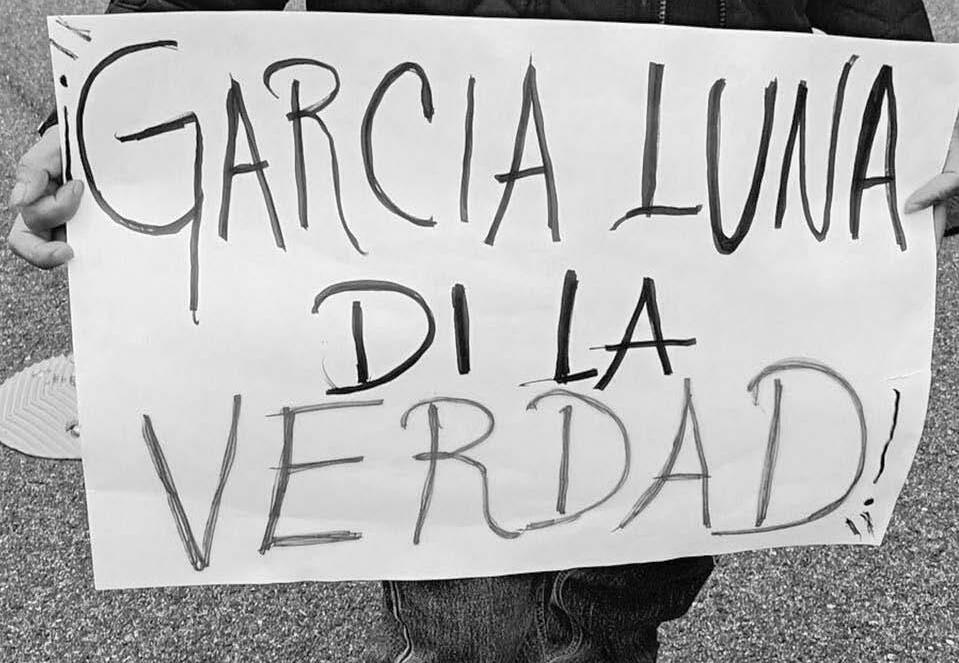 ¡GARCIA LUNA
DI LA
VERDAD!